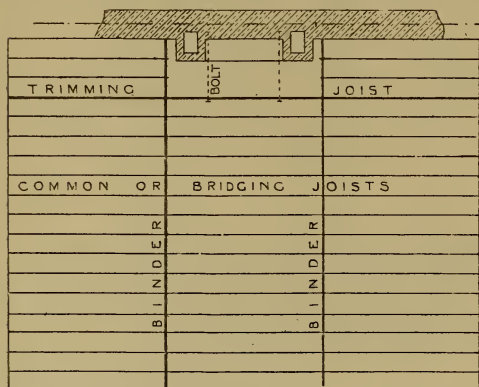 BOLT
TRIMMING JOIST
COMMON OR BRIDGING JOISTS
BINDER
BINDER